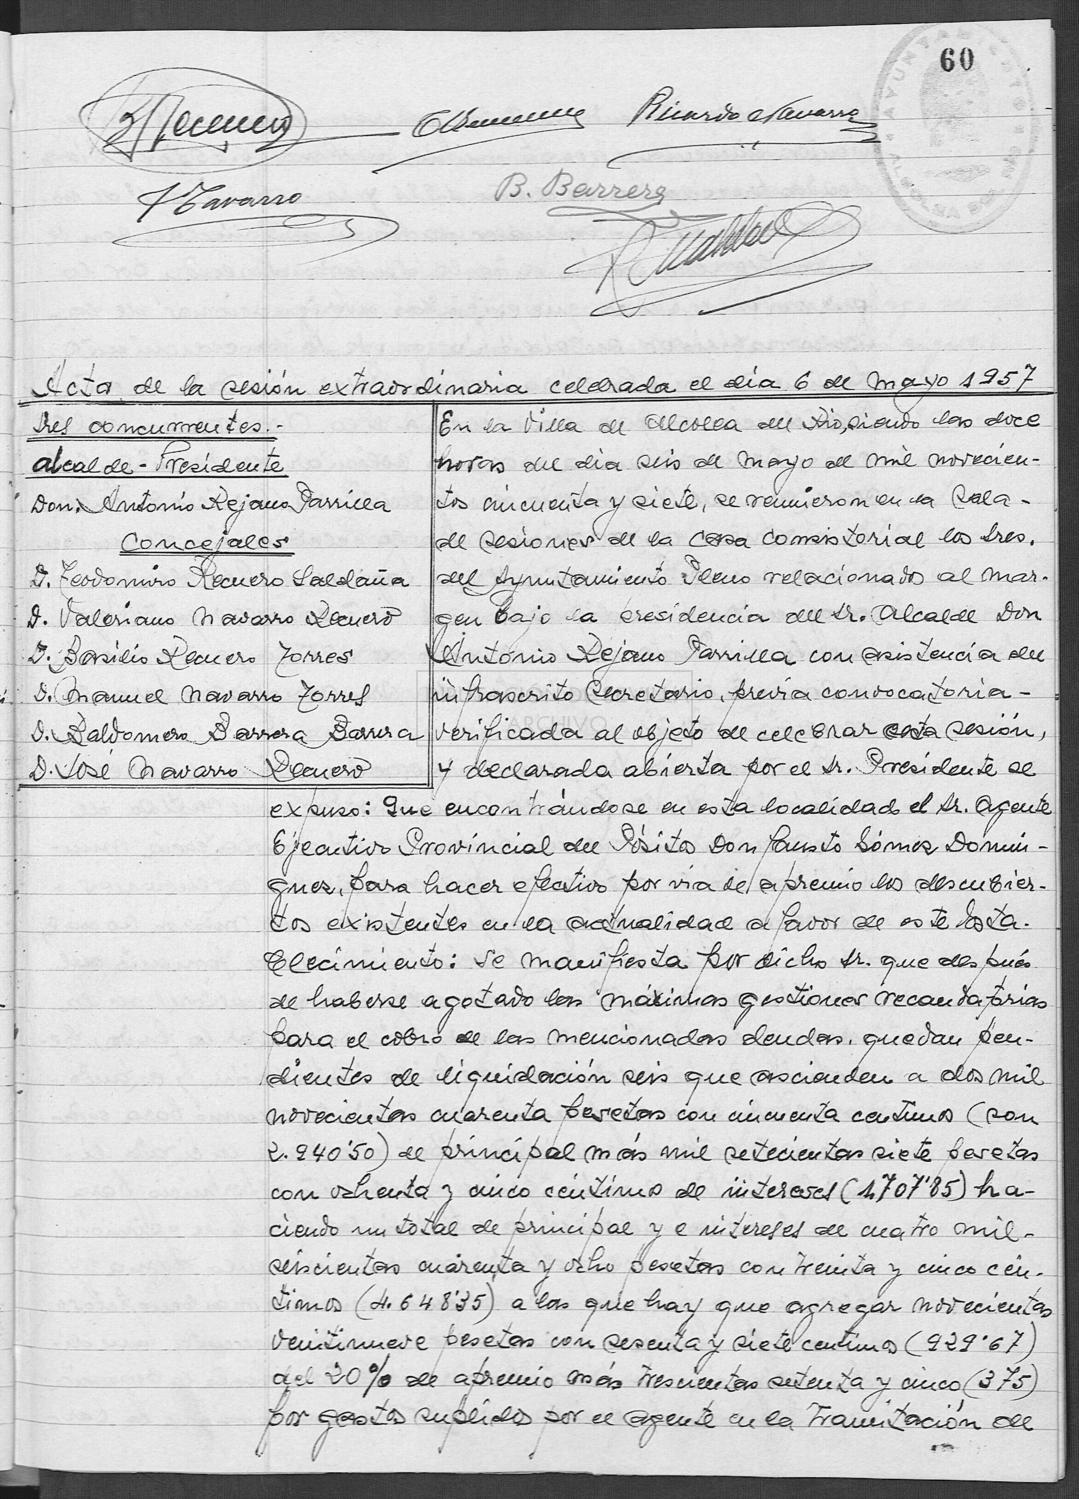 60
Ricardo Navarro
Navarro
B. Barrera
Acta de la sesión extraordinaria celebrada el día 6 de mayo 1957
Sres concurrentes.-
Alcalde-Presidente
Don. Antonio Rejano Parrilla
Concejales
D. Teodomiro Recuero Saldaña
D. Valeriano Navarro Recuero
D. Basilio Recuero Torres
D. Manuel Navarro Torres
D. Baldomero Barrera Barrera
D. José Navarro Recuero
En la Villa de Alcolea del Rio, siendo las doce
horas del día seis de mayo de mil novecien-
tos cincuenta y siete, se reunieron en la Sala-
de sesiones de la Casa Consistorial los Sres.
del Ayuntamiento Pleno relacionados al mar-
gen bajo la presidencia del Sr. Alcalde Don
Antonio Rejano Parrilla con asistencia del
infrascrito Secretario, previa convocatoria-
verificada al objeto de celebrar esta sesión,
y declarada abierta por el Sr. Presidente se
expuso: Que encontrándose en esta localidad el Sr. Agente
Ejecutivo Provincial del Pósito Don Fausto Gómez Domín-
guez, para hacer efectivo por via de apremio los descubier-
tos existentes en la actualidad a favor de este Esta-
blecimiento: Se manifiesta por dicho Sr. que después
de haberse agotado las máximas gestiones recaudatorias
para el cobro de las mencionadas deudas, quedan pen-
dientes de liquidación seis que ascienden a dos mil
novecientas cuarenta pesetas con cincuenta centimos (son
2.940'50) de principal más mil setecientas siete pesetas
con ochenta y cinco céntimos de intereses (1.707'85) ha-
ciendo un total de principal y e intereses de cuatro mil-
seiscientas cuarenta y ocho pesetas con treinta y cinco cén-
timos (4.648'35) a las que hay que agregar novecientas
veintinueve pesetas con sesenta y siete centimos (929'67)
del 20% de apremio más trescientas setenta y cinco (375)
por gastos suplidos por el agente en la tramitación de
ARCHIVO